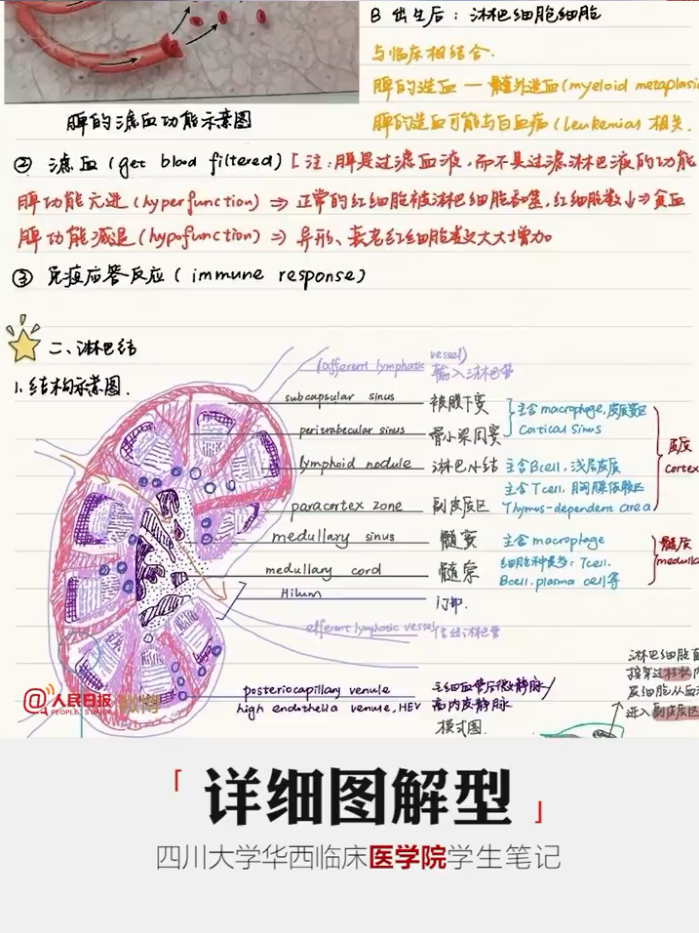 B 出生后：淋巴细胞细胞
与临床相结合.
脾的造血 — 髓外造血(myeloid metaplasi
脾的造血可能与白血病(leukemias 相关.
脾的滤血功能示意图
② 滤血(get blood filtered) [注:脾是过滤血液,而不是过滤淋巴液的功能
脾功能亢进(hyperfunction) ⇒ 正常的红细胞被淋巴细胞吞噬,红细胞数↓⇒贫血
脾功能减退(hypofunction) ⇒ 异形、衰老红细胞数大大增加
③ 免疫应答反应( immune response)
二、淋巴结
1. 结构示意图.
(afferent lymphatic vessel)
输入淋巴管
subcapsular sinus 被膜下窦
peritrabecular sinus 骨小梁周窦
主含macrophage,皮质窦区
Cortical sinus
lymphoid nodule 淋巴小结 主含Bcell,浅层皮质
paracortex zone 副皮质区
主含Tcell,胸腺依赖区
Thymus-dependent area
皮质
cortex
medullary sinus 髓窦 主含macrophage
medullary cord 髓索
细胞种类多: Tcell.
Bcell.plasma cell等
髓质
medulla
Hilum 门部.
efferent lymphatic vessel 传出淋巴管
posteriocapillary venule
high endothelia venule, HEV
毛细血管后微静脉/
高内皮静脉
模式图.
淋巴细胞
进入副皮质区
@人民日报
PEOPLE'S
微博
「详细图解型」
四川大学华西临床医学院学生笔记